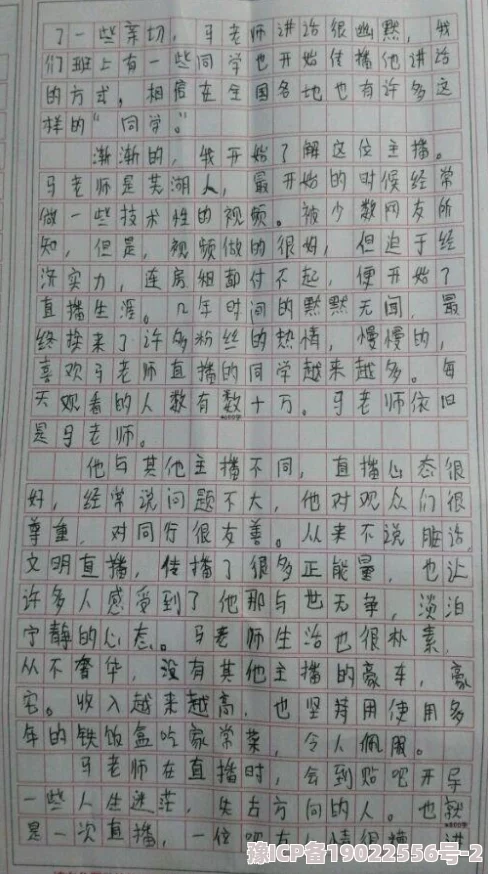 了一些亲切，马老师讲话很幽默，我
们班上有一些同学也开始传播他讲话
的方式，相信在全国各地也有许多这
样的“同学。”
渐渐的，我开始了解这位主播。
马老师是芜湖人，最开始的时候经常
做一些技术性的视频。被少数网友所
知，但是，视频做的很好，但迫于经
济实力，连房租都付不起，便开始了
直播生涯。几年时间的默默无闻，最
终换来了许多粉丝的热情，慢慢的，
喜欢马老师直播的同学越来越多。每
天观看的人数有数十万。马老师依旧
是马老师。
他与其他主播不同，直播心态很
好，经常说问题不大，他对观众们很
尊重，对同行很友善。从来不说脏话，
文明直播，传播了很多正能量，也让
许多人感受到了他那与世无争，淡泊
宁静的心态。马老师生活也很朴素，
从不奢华，没有其他主播的豪车，豪
宅。收入越来越高，也坚持用使用多
年的铁饭盒吃家常菜，令人佩服。
马老师在直播时，会到贴吧开导
一些人生迷茫，失去方向的人。也就
是一次直播，一位吧友人情很糟，进
豫ICP备19022556号-2